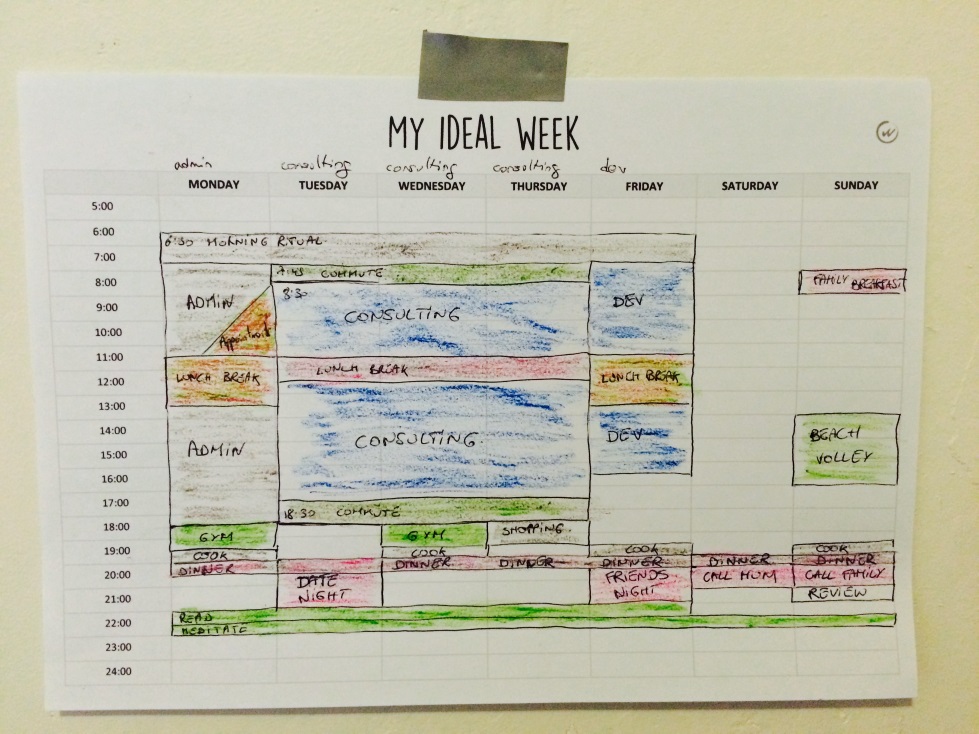 MY IDEAL WEEK
W
admin consulting consulting consulting dev
MONDAY TUESDAY WEDNESDAY THURSDAY FRIDAY SATURDAY SUNDAY
5:00
6:00
6:30 MORNING RITUAL
7:00
7:45 COMMUTE
8:00 FAMILY BREAKFAST
8:30
ADMIN CONSULTING DEV
9:00
10:00 Appointment
11:00
LUNCH BREAK LUNCH BREAK LUNCH BREAK
12:00
13:00
14:00 ADMIN CONSULTING DEV BEACH
15:00 VOLLEY
16:00
17:00
18:30 COMMUTE
18:00 GYM GYM SHOPPING
19:00 COOK COOK COOK COOK
DINNER DINNER DINNER DINNER DINNER DINNER
20:00 DATE FRIENDS CALL MUM CALL FAMILY
21:00 NIGHT NIGHT REVIEW
READ
22:00 MEDITATE
23:00
24:00